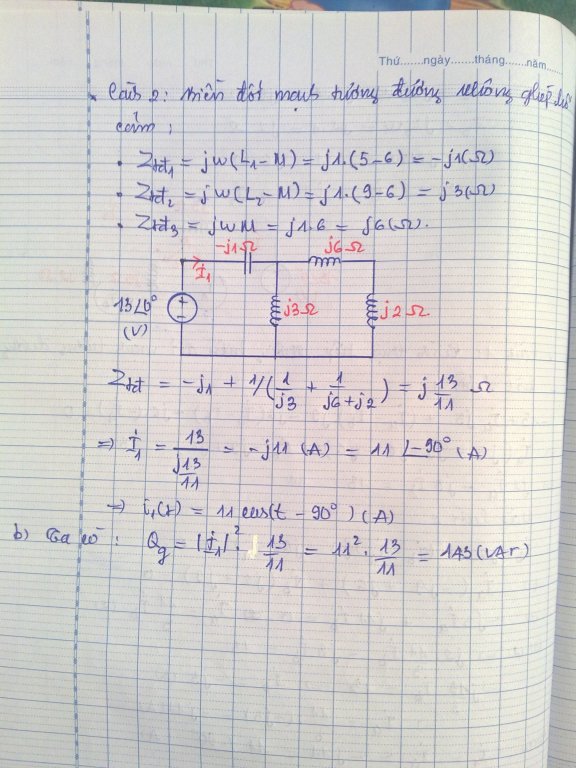 Thứ.......ngày.......tháng.......năm.......
Câu 2: Biến đổi mạch tương đương không ghép hỗ
cảm:
• Ztđ₁ = jw(L₁-M) = j1.(5-6) = -j1(Ω)
• Ztđ₂ = jw(L₂-M) = j1.(9-6) = j3(Ω)
• Ztđ₃ = jwM = j1.6 = j6(Ω).
-j1Ω j6Ω
İ₁
13∠0° j3Ω j2Ω
(V)
Ztđ = -j1 + 1/(1/j3 + 1/(j6+j2)) = j 13/11 Ω
⇒ İ₁ = 13/(j 13/11) = -j11 (A) = 11 ∠-90° (A)
⇒ i₁(t) = 11 cos(t - 90°) (A)
b) Ta có: Qg = |İ₁|². 13/11 = 11². 13/11 = 143 (VAr)